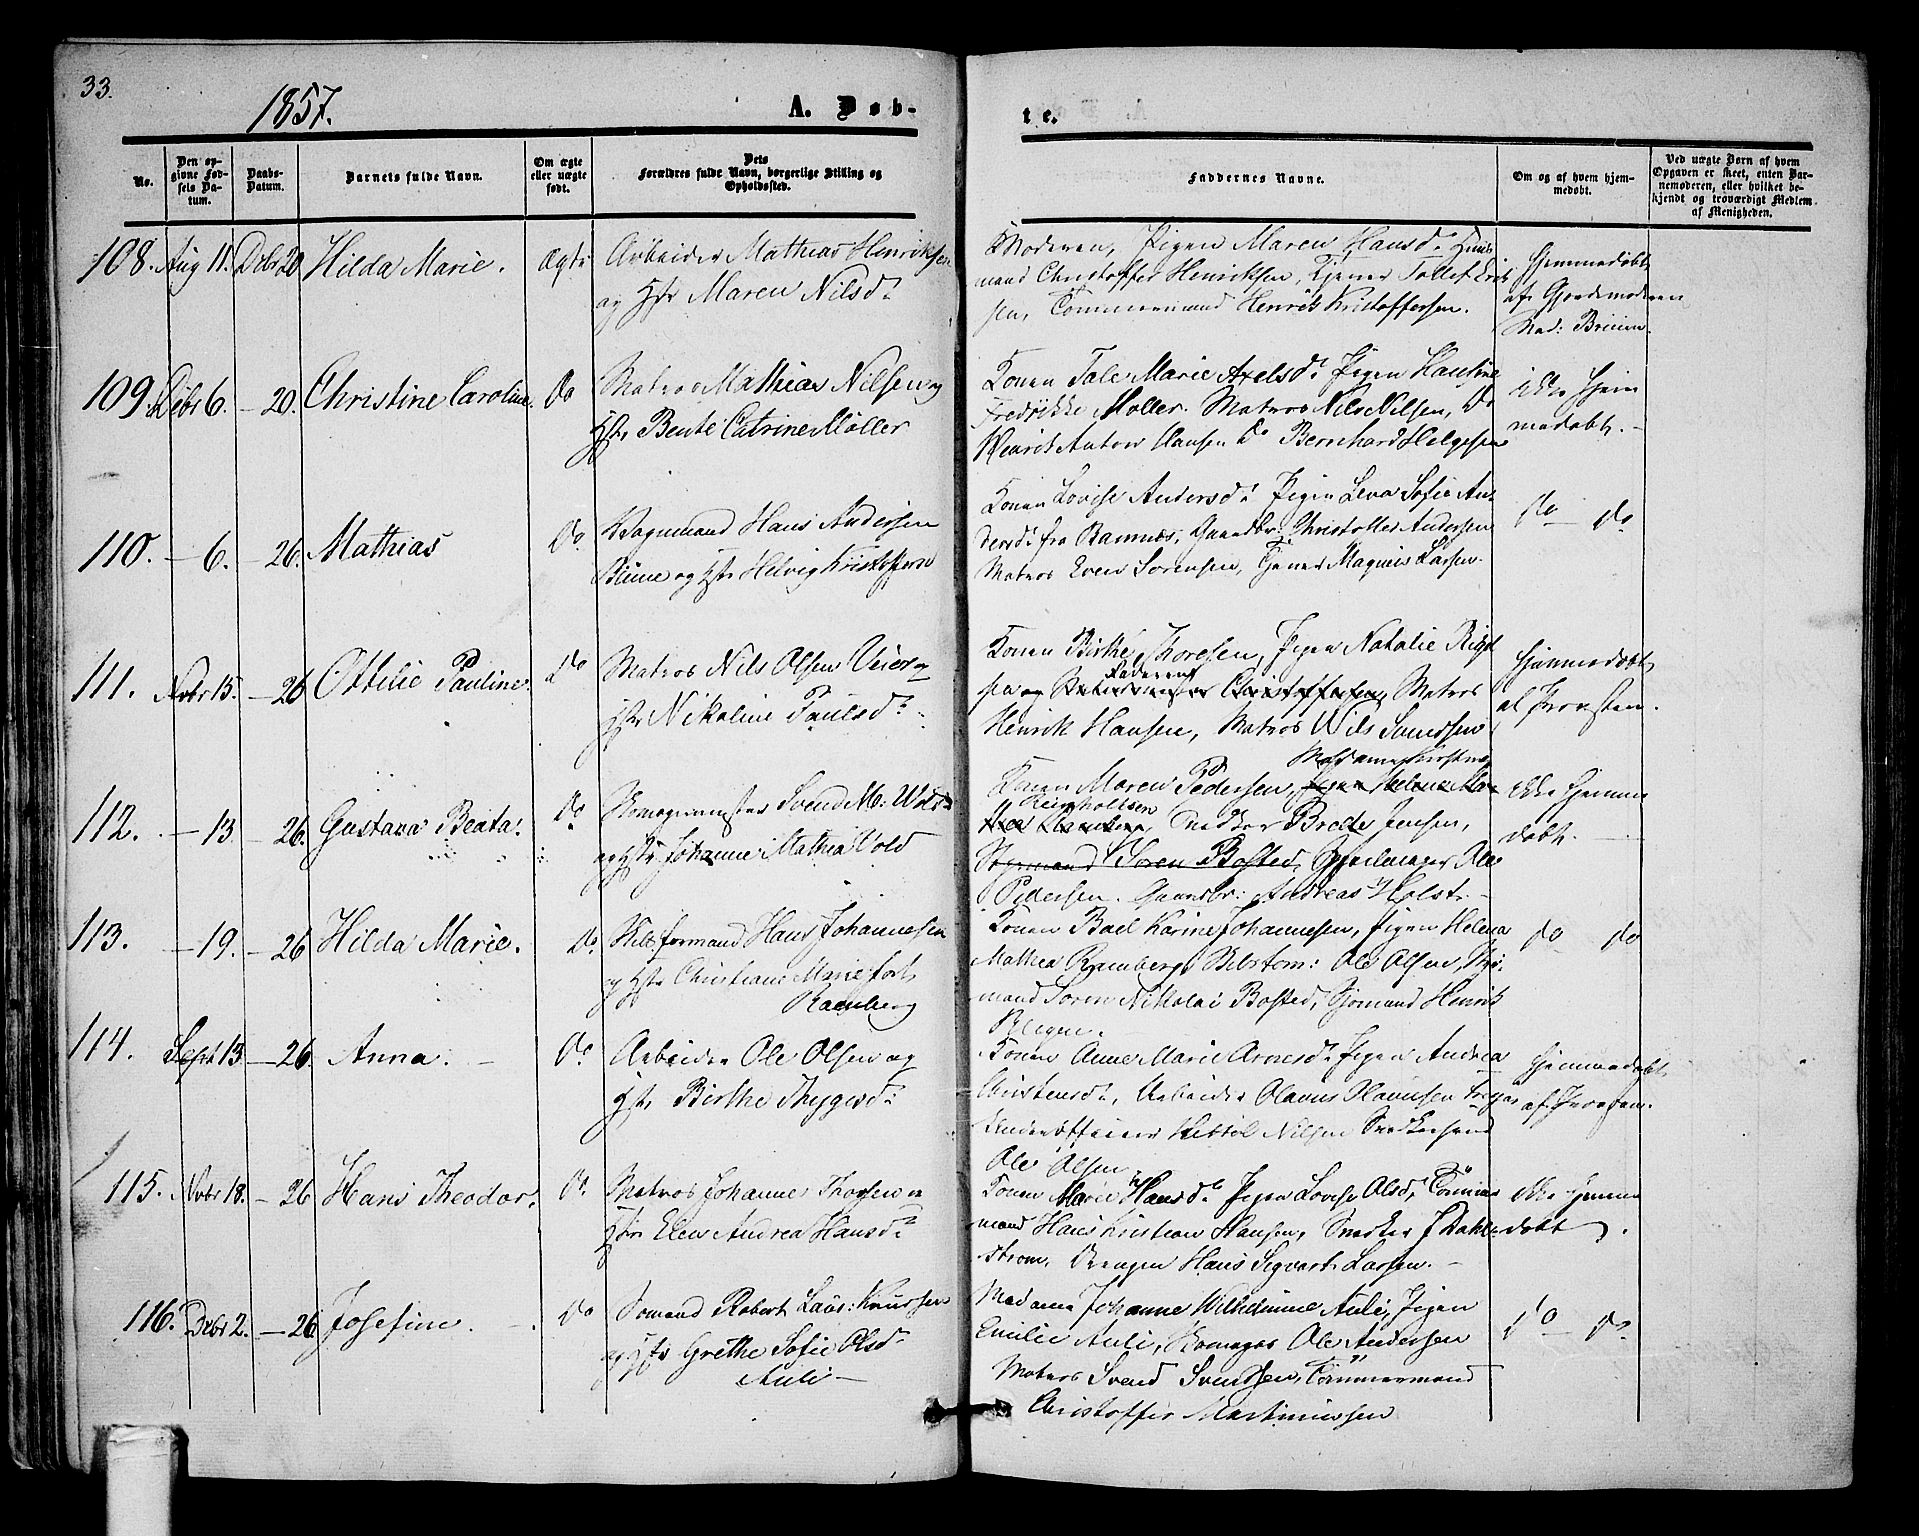 33.
1857.
A. Døb-
te.
No.
Den op-
givne Fød-
sels Da-
tum.
Daabs-
Datum.
Barnets fulde Navn.
Om ægte
eller uægte
født.
Dets
Forældres fulde Navn, borgerlige Stilling og
Opholdssted.
Faddernes Navne.
Om og af hvem hjem-
medøbt.
Ved uægte Børn af hvem
Opgaven er skeet, enten Bar-
nemoderen, eller hvilket be-
kjendt og troværdigt Medlem
af Menigheden.
108. Aug 11. Dcbr 20 Hilda Marie. ægte Arbeider Mathias Henriksen
og Hstr Maren Nilsd:
Moderen, Pigen Maren Hansd:
mand Christoffer Henriksen, Tjener Tollef Erik
sen, Tømmermand Henrik Kristoffersen.
Hjemmedøbt
af Gjordemoderen
Mad:
109. Dcbr 6. - 20. Christine Caroline. do Matros Mathias Nilsen og
Hstr Bente Catrine Møller
Konen Tale Marie Axelsd: Pigen Hansine
Fredrikke Møller. Matros Nils Nilsen, do
Henrik Anton Hansen do Bernhard Helgesen
ikke hjem
medøbt. -
110. - 6. - 26. Mathias do. Vognmand Hans Andersen
og Hstr Helvig Kristoffersen
Konen Lovise Andersd: Pigen Lena Sofie An
dersd: fra Bamnæs, Gaardbr: Christoffer Andersen
Matros Even Sørensen, Tjener Magnus Larsen.
do - do
111. Nvbr 15. - 26 Ottilie Pauline. do Matros Nils Olsen Veier og
Hstr Nikoline Paulsd:
Konen Birthe Thoresen, Pigen Natalie
Faderen
sen og Christoffersen, Matros
Henrik Hansen, Matros Nils Svendsen
Hjemmedøbt
af Provsten.
112. - 13. - 26. Gustava Beata. do Skomagermester Svend M: Vold
og Hstr Johanne Mathea Vold
Madame Kirstine
Konen Maren Pedersen, Pigen Helene Ma-
Reinholtsen
thea Ramberg, Snedker Brede Jensen,
Søren Bosted, Ole
Pedersen. Gaardbr: Andreas Holst. -
Ikke hjemme
døbt. -
113. - 19. - 26 Hilda Marie. do. Hans Johannesen
og Hstr Christiane Marie født
Ramberg
Konen Boel Karine Johannesen, Pigen Helena
Mathea Ramberg, Ole Olsen, Sø-
mand Søren Nikolai Bosted, Sjømand Henrik
do do
114. Sept 13 - 26. Anna. - do Arbeider Ole Olsen og
Hstr Birthe Thygesd:
Konen Anne Marie Arnesd: Pigen Andrea
Christensd:, Arbeider Olavus Olavusen
Underofficier Kittel Nilsen
Ole Olsen.
Hjemmedøbt
af Provsten.
115. Nvbr 18. - 26 Hans Theodor. do. Matros Johannes Thorsen og
Hstr Elen Andrea Hansd:
Konen Maren Hansd: Pigen Lovise Olsd: Tømmer
mand Hans Kristian Hansen, Snedker J Dahl-
strøm, Drengen Hans Sigvart Larsen. -
Ikke hjemme
døbt.
116. Dcbr 2. - 26 Josefine. - do Sømand Robert Laus: Knudsen
og Hstr Grethe Sofie Olsd:
Auli -
Madame Johanne Wilhelmine Auli, Pigen
Emilie Auli, Skomager Ole Andersen
Matros Svend Svendsen, Tømmermand
Christoffer Martiniussen
do - do.